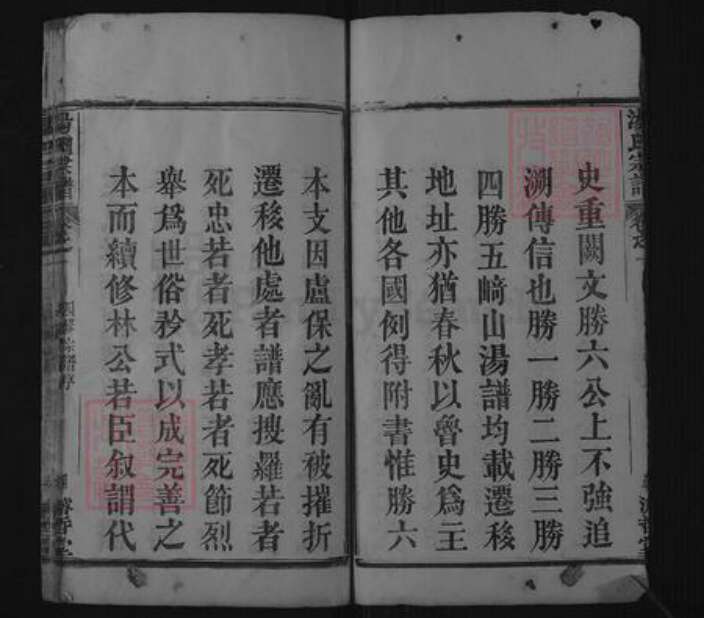 史重闕文勝六公上不強追
溯傳信也勝一勝二勝三勝
四勝五﨑山湯譜均載遷移
地址亦猶春秋以魯史爲主
其他各國例得附書惟勝六
本支因盧保之亂有被摧折
遷移他處者譜應搜羅若者
死忠若者死孝若者死節烈
舉爲世俗矜式以成完善之
本而續修林公若臣叙謂代